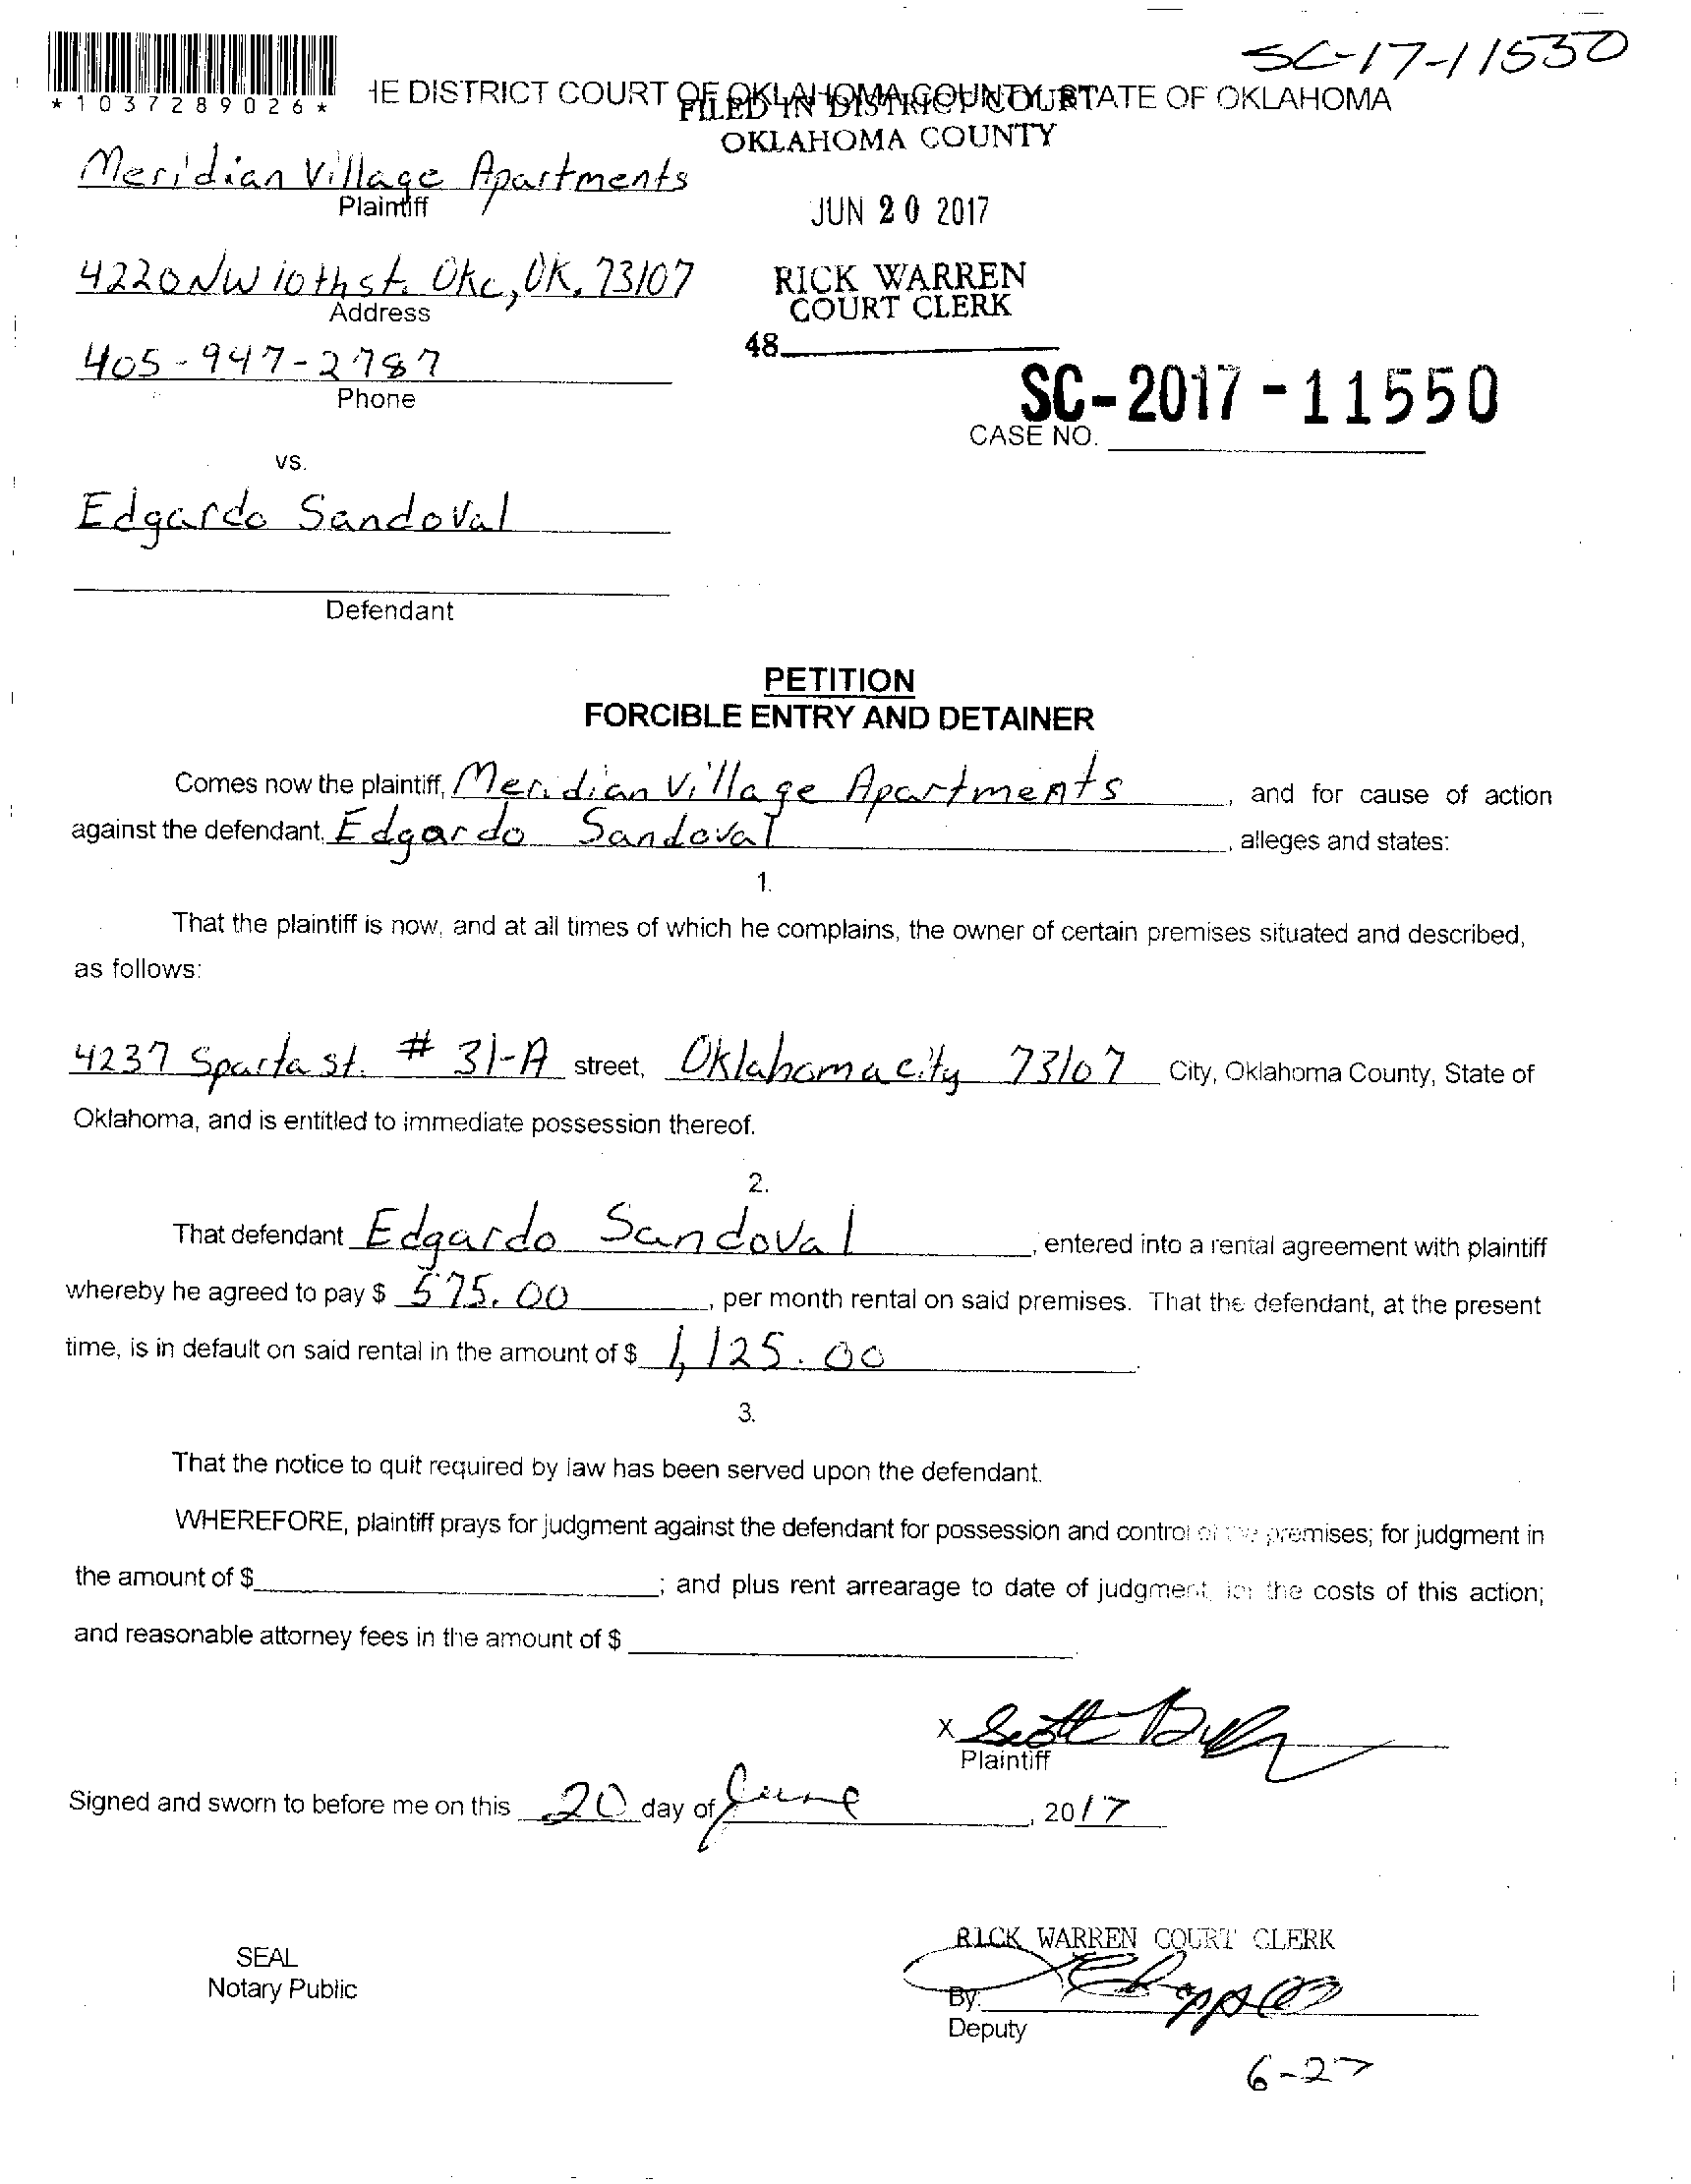 SC-17-11550
*1037289026*
HE DISTRICT COURT OF OKLAHOMA COUNTY STATE OF OKLAHOMA
FILED IN DISTRICT COURT
OKLAHOMA COUNTY
Meridian Village Apartments
Plaintiff
JUN 20 2017
4220 NW 10th st. Okc, OK. 73107
Address
RICK WARREN
COURT CLERK
405-947-2787
Phone
48
SC-2017-11550
CASE NO.
vs.
Edgardo Sandoval
Defendant
PETITION
FORCIBLE ENTRY AND DETAINER
Comes now the plaintiff, Meridian Village Apartments, and for cause of action
against the defendant, Edgardo Sandoval, alleges and states:
1.
That the plaintiff is now, and at all times of which he complains, the owner of certain premises situated and described,
as follows:
4237 Sparta st. # 31-A street, Oklahoma city 73107 City, Oklahoma County, State of
Oklahoma, and is entitled to immediate possession thereof.
2.
That defendant Edgardo Sandoval, entered into a rental agreement with plaintiff
whereby he agreed to pay $ 575.00, per month rental on said premises. That the defendant, at the present
time, is in default on said rental in the amount of $ 1,125.00
3.
That the notice to quit required by law has been served upon the defendant.
WHEREFORE, plaintiff prays for judgment against the defendant for possession and control of the premises; for judgment in
the amount of $; and plus rent arrearage to date of judgment, for the costs of this action;
and reasonable attorney fees in the amount of $
X Scott
Plaintiff
Signed and sworn to before me on this 20 day of June, 2017
RICK WARREN COURT CLERK
SEAL
Notary Public
By:
Deputy
6-27